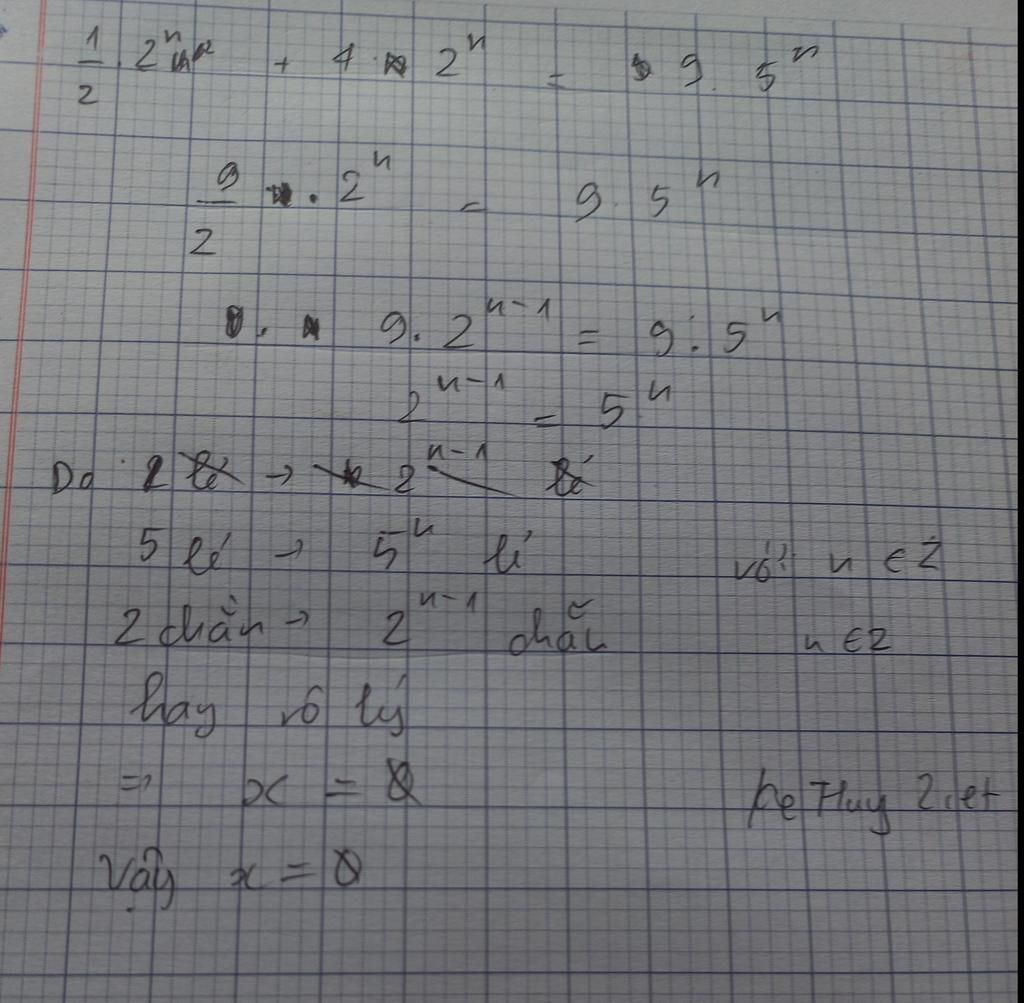 1/2 . 2^n + 4 . 2^n = 9 . 5^n
9/2 . 2^n = 9 . 5^n
9 . 2^{n-1} = 9 . 5^n
2^{n-1} = 5^n
Do 2 lẻ → 2^{n-1} lẻ
5 lẻ → 5^n lẻ với n ∈ Z
2 chẵn → 2^{n-1} chẵn n ∈ Z
hay vô lý
⇒ x = Ø
Vậy x = Ø